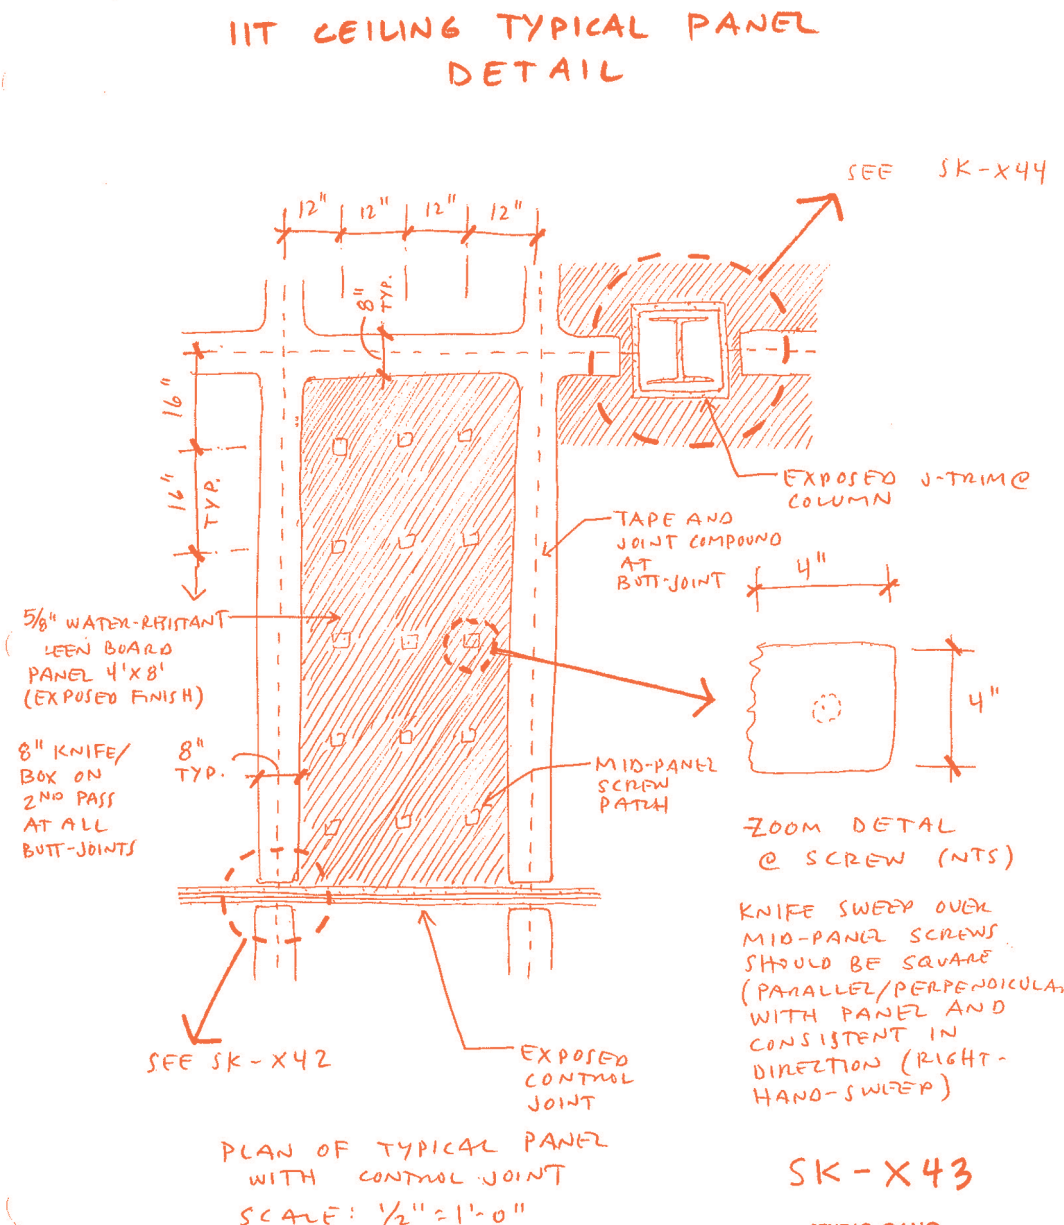 IIT CEILING TYPICAL PANEL
DETAIL
SEE SK-X44
12" 12" 12" 12"
8"
TYP.
16"
16"
TYP.
EXPOSED J-TRIM @
COLUMN
TAPE AND
JOINT COMPOUND
AT
BUTT-JOINT
4"
4"
5/8" WATER-RESISTANT
BOARD
PANEL 4'X8'
(EXPOSED FINISH)
8" KNIFE/
BOX ON
2ND PASS
AT ALL
BUTT-JOINTS
8"
TYP.
MID-PANEL
SCREW
PATCH
ZOOM DETAL
@ SCREW (NTS)
KNIFE SWEEP OVER
MID-PANEL SCREWS
SHOULD BE SQUARE
(PARALLEL/PERPENDICULAR
WITH PANEL AND
CONSISTENT IN
DIRECTION (RIGHT-
HAND-SWEEP)
SEE SK-X42
EXPOSED
CONTROL
JOINT
PLAN OF TYPICAL PANEL
WITH CONTROL JOINT
SCALE: 1/2"=1'-0"
SK-X43